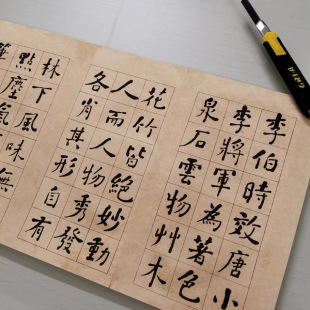 李伯時效唐小
李將軍為著色
泉石雲物艸木
花竹皆絕妙動
人而人物秀發
各肖其形自有
林下風味無
點塵氣